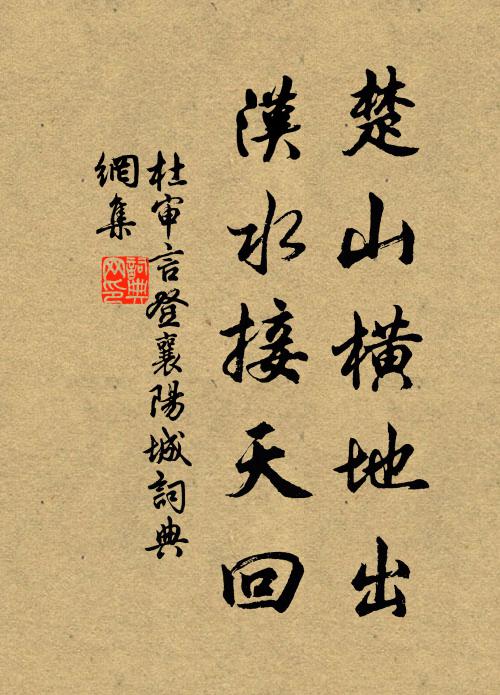 楚山橫地出
漢水接天回
杜审言登襄陽城詞典
網集
詞典
网印